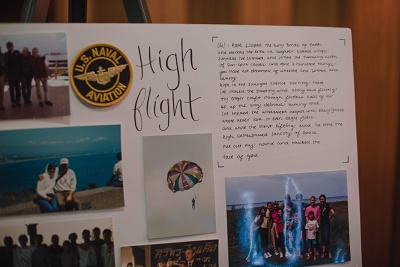 U.S. NAVAL
AVIATION
High
flight
Oh! I have slipped the surly bonds of Earth
and danced the skies on laughter-silvered wings;
Sunward I've climbed, and joined the tumbling mirth
of sun-split clouds, and done a hundred things
you have not dreamed of wheeled and soared and
swung
High in the sunlit silence. Hov'ring there
I've chased the shouting wind along, and flung
my eager craft through footless halls of air
up, up the long, delirious, burning blue
I've topped the windswept heights with easy grace
where never lark, or even eagle flew
and, while the silent lifting mind I've trod the
high untrespassed sanctity of space
put out my hand and touched the
face of God.